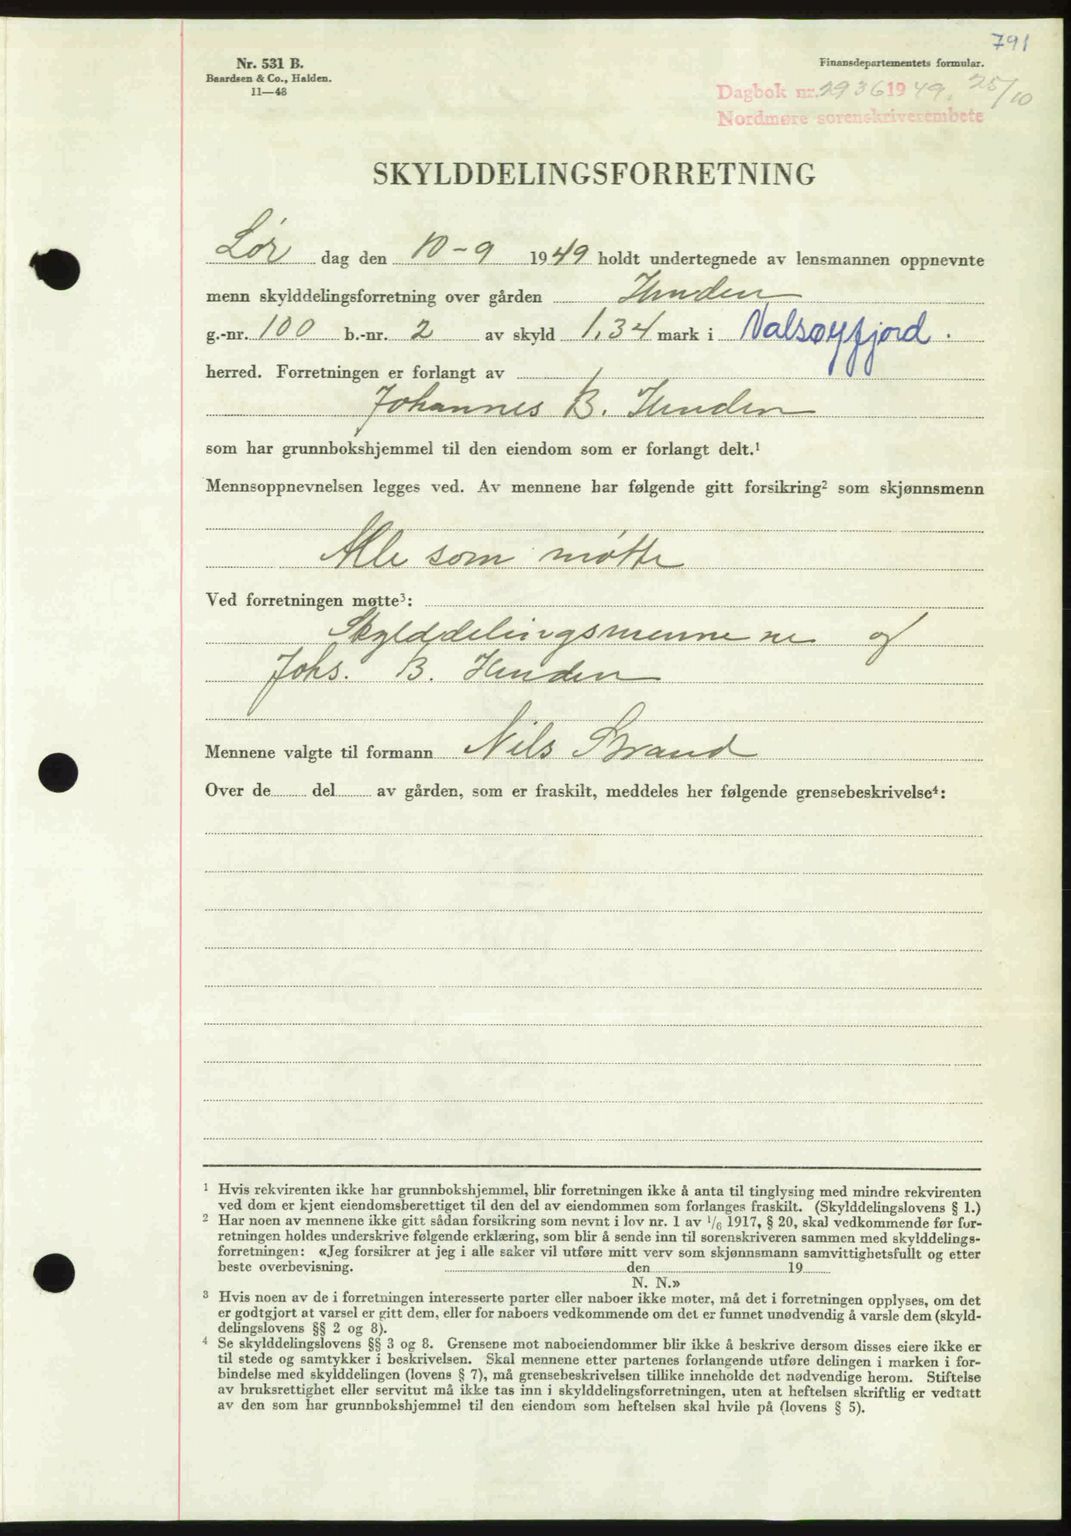 791
Nr. 531 B.
Baardsen & Co., Halden.
11—48
Finansdepartementets formular.
Dagbok nr. 2936 1949. 25/10
Nordmøre sorenskriverembete
SKYLDDELINGSFORRETNING
Lør dag den 10-9 1949 holdt undertegnede av lensmannen oppnevnte
menn skylddelingsforretning over gården Hunden
g.-nr. 100 b.-nr. 2 av skyld 1,34 mark i Valsøyfjord.
herred. Forretningen er forlangt av
Johannes B. Hunden
som har grunnbokshjemmel til den eiendom som er forlangt delt.¹
Mennsoppnevnelsen legges ved. Av mennene har følgende gitt forsikring² som skjønnsmenn
Alle som møtte
Ved forretningen møtte³:
Skylddelingsmennene og
Johs. B. Hunden
Mennene valgte til formann Nils Strand
Over de del av gården, som er fraskilt, meddeles her følgende grensebeskrivelse⁴:
¹ Hvis rekvirenten ikke har grunnbokshjemmel, blir forretningen ikke å anta til tinglysing med mindre rekvirenten
ved dom er kjent eiendomsberettiget til den del av eiendommen som forlanges fraskilt. (Skylddelingslovens § 1.)
² Har noen av mennene ikke gitt sådan forsikring som nevnt i lov nr. 1 av 1/6 1917, § 20, skal vedkommende før for-
retningen holdes underskrive følgende erklæring, som blir å sende inn til sorenskriveren sammen med skylddelings-
forretningen: «Jeg forsikrer at jeg i alle saker vil utføre mitt verv som skjønnsmann samvittighetsfullt og etter
beste overbevisning. den 19
N. N.»
³ Hvis noen av de i forretningen interesserte parter eller naboer ikke møter, må det i forretningen opplyses, om det
er godtgjort at varsel er gitt dem, eller for naboers vedkommende om det er funnet unødvendig å varsle dem (skyld-
delingslovens §§ 2 og 8).
⁴ Se skylddelingslovens §§ 3 og 8. Grensene mot naboeiendommer blir ikke å beskrive dersom disses eiere ikke er
til stede og samtykker i beskrivelsen. Skal mennene etter partenes forlangende utføre delingen i marken i for-
bindelse med skylddelingen (lovens § 7), må grensebeskrivelsen tillike inneholde det nødvendige herom. Stiftelse
av bruksrettighet eller servitut må ikke tas inn i skylddelingsforretningen, uten at heftelsen skriftlig er vedtatt
av den som har grunnbokshjemmel til den eiendom som heftelsen skal hvile på (lovens § 5).